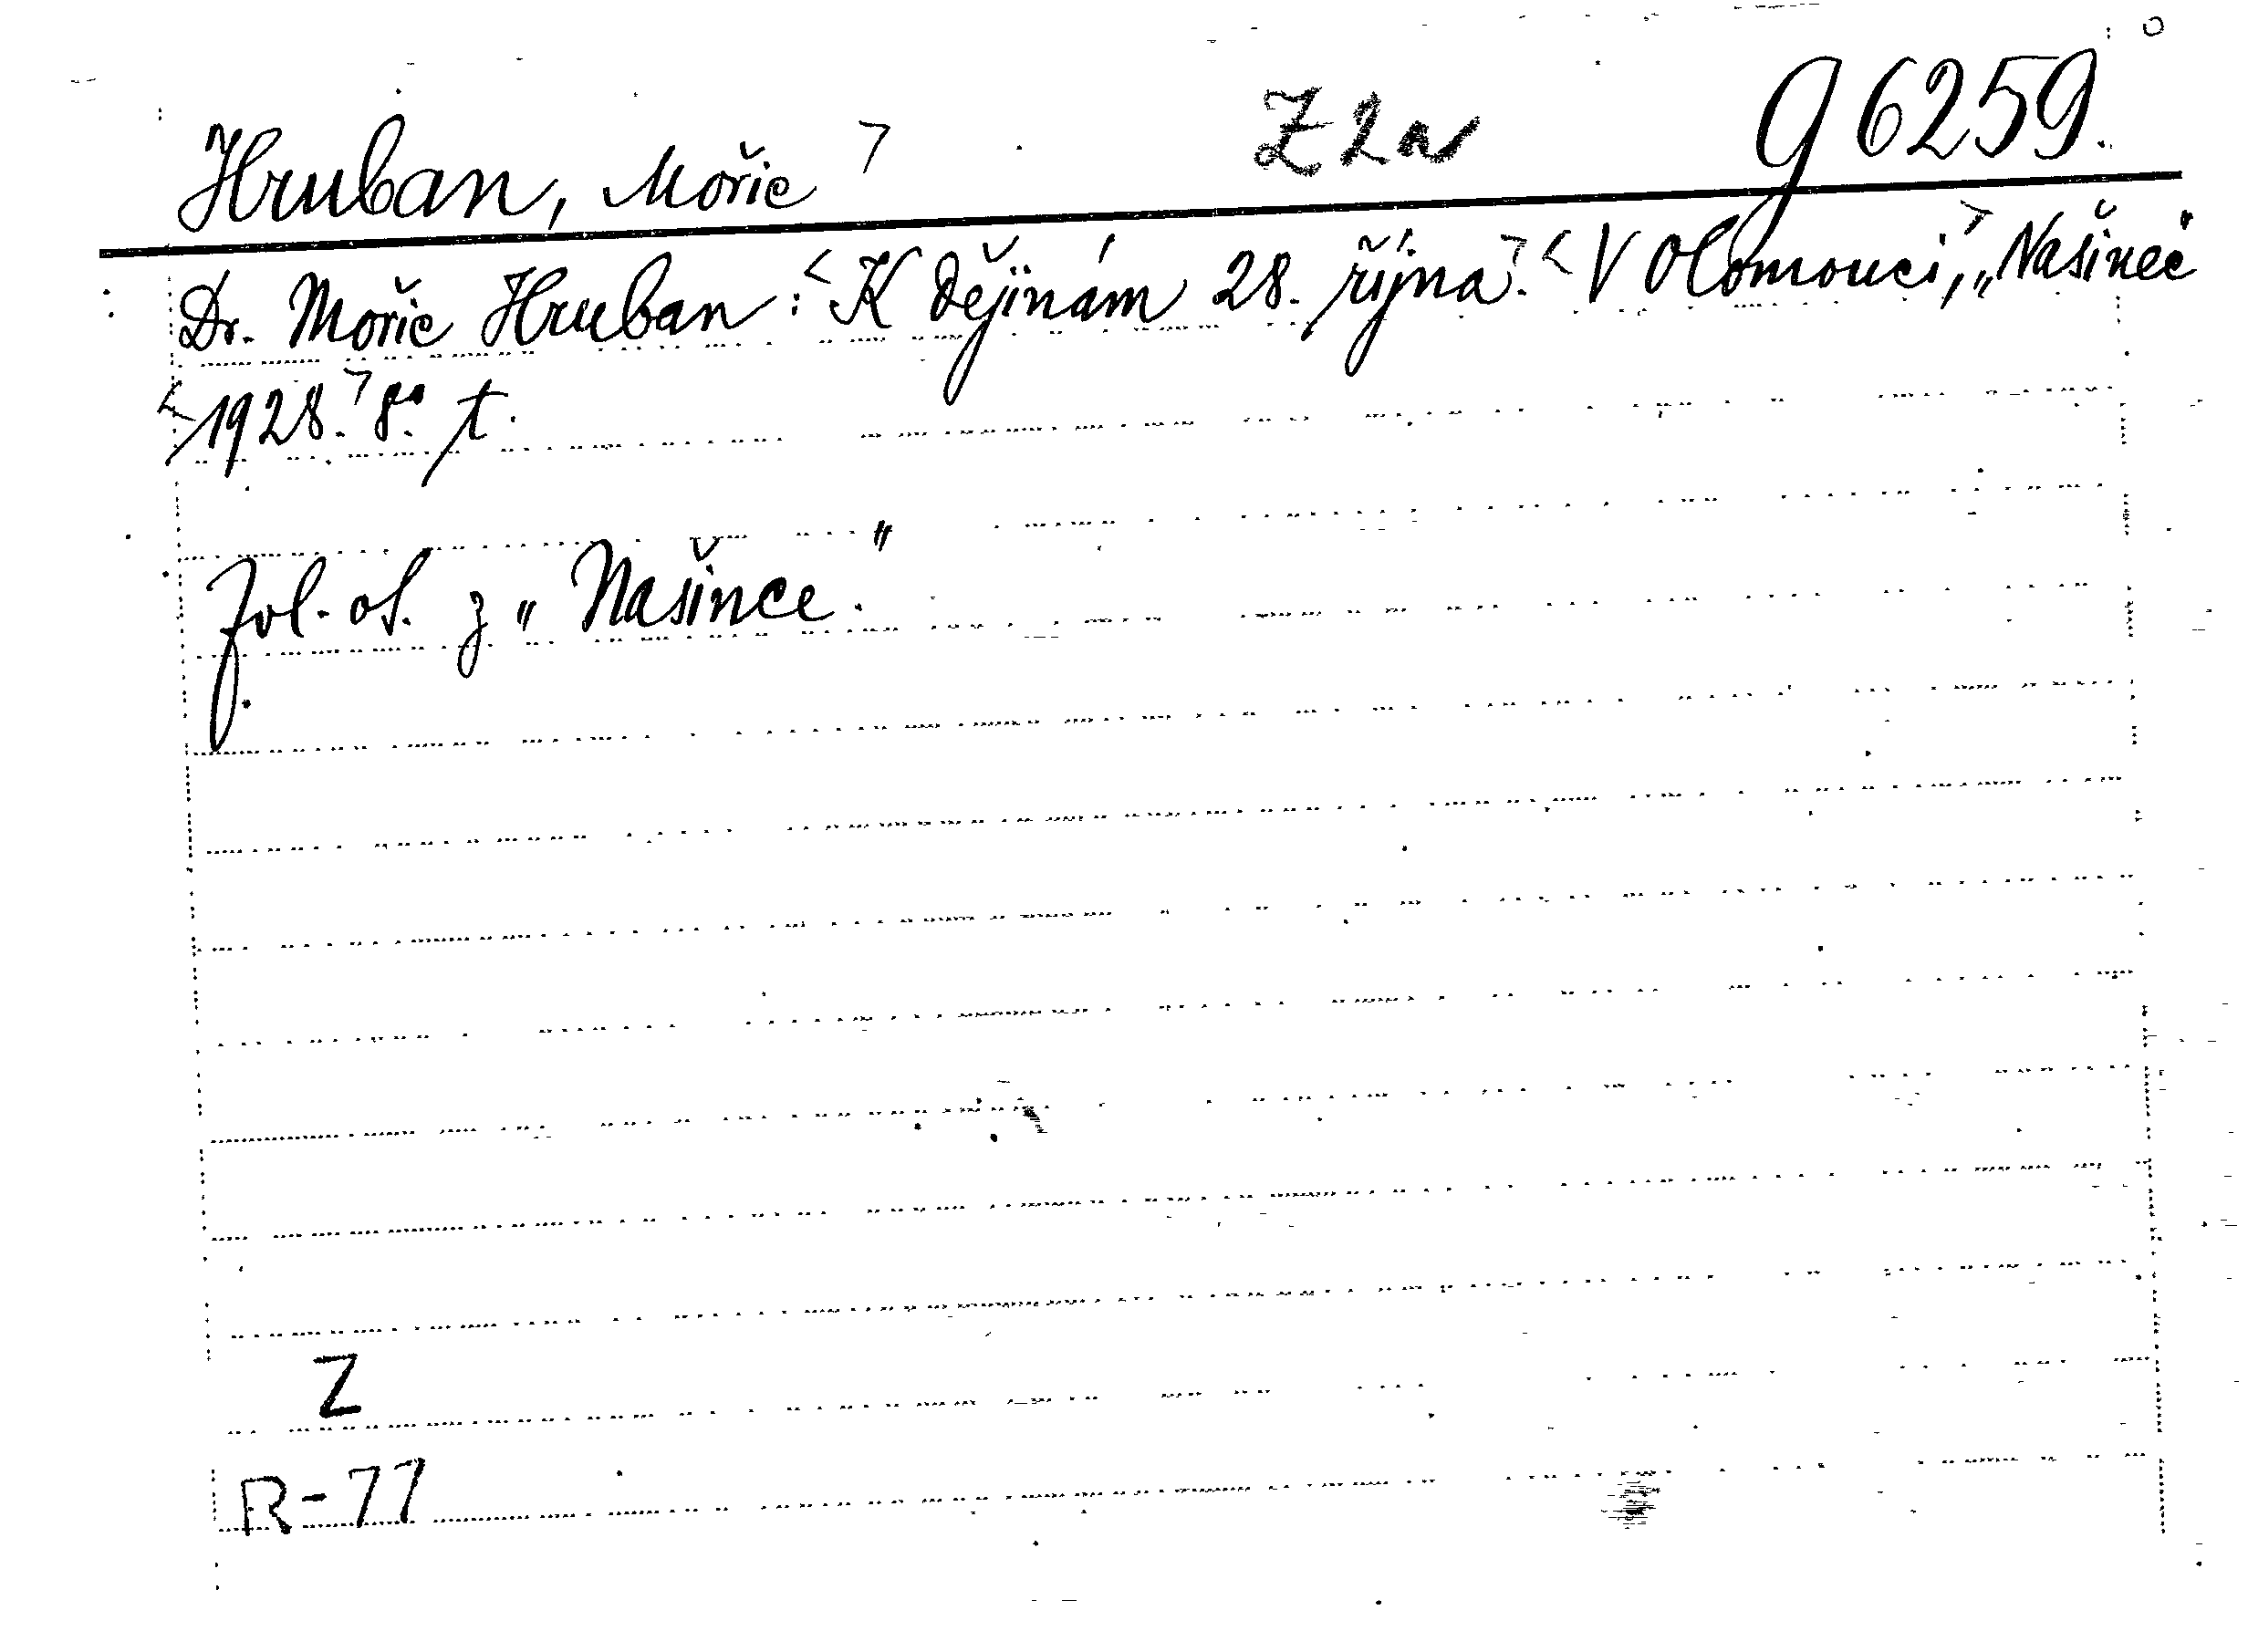 Hruban, Mořic Z2a g 6259.
Dr. Mořic Hruban: K dějinám 28. října. V Olomouci, „Našinec"
1928. 8° t.
Zvl. ot. z „Našince."
Z
R-77